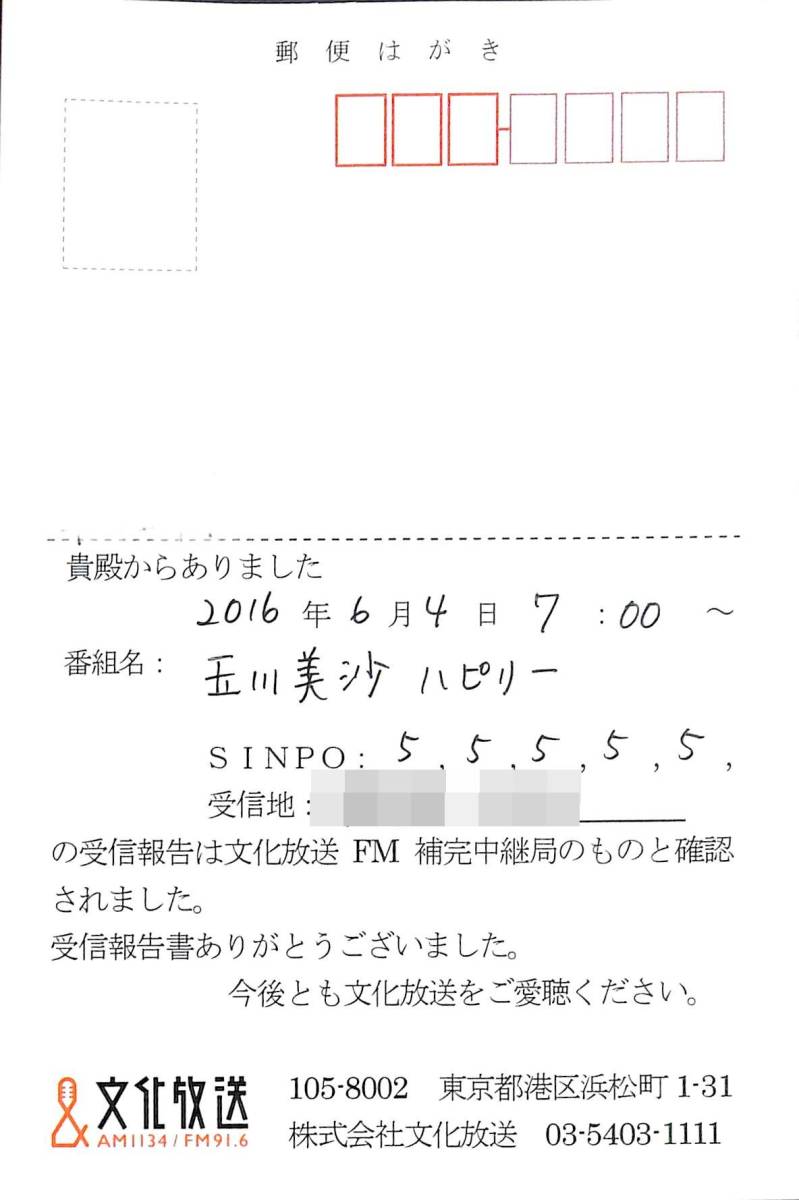 郵便はがき
貴殿からありました
2016 年 6 月 4 日 7 : 00 ～
番組名： 玉川美沙 ハピリー
ＳＩＮＰＯ： 5 , 5 , 5 , 5 , 5 ,
受信地：
の受信報告は文化放送 FM 補完中継局のものと確認
されました。
受信報告書ありがとうございました。
今後とも文化放送をご愛聴ください。
文化放送
AM1134/FM91.6
105-8002 東京都港区浜松町 1-31
株式会社文化放送 03-5403-1111